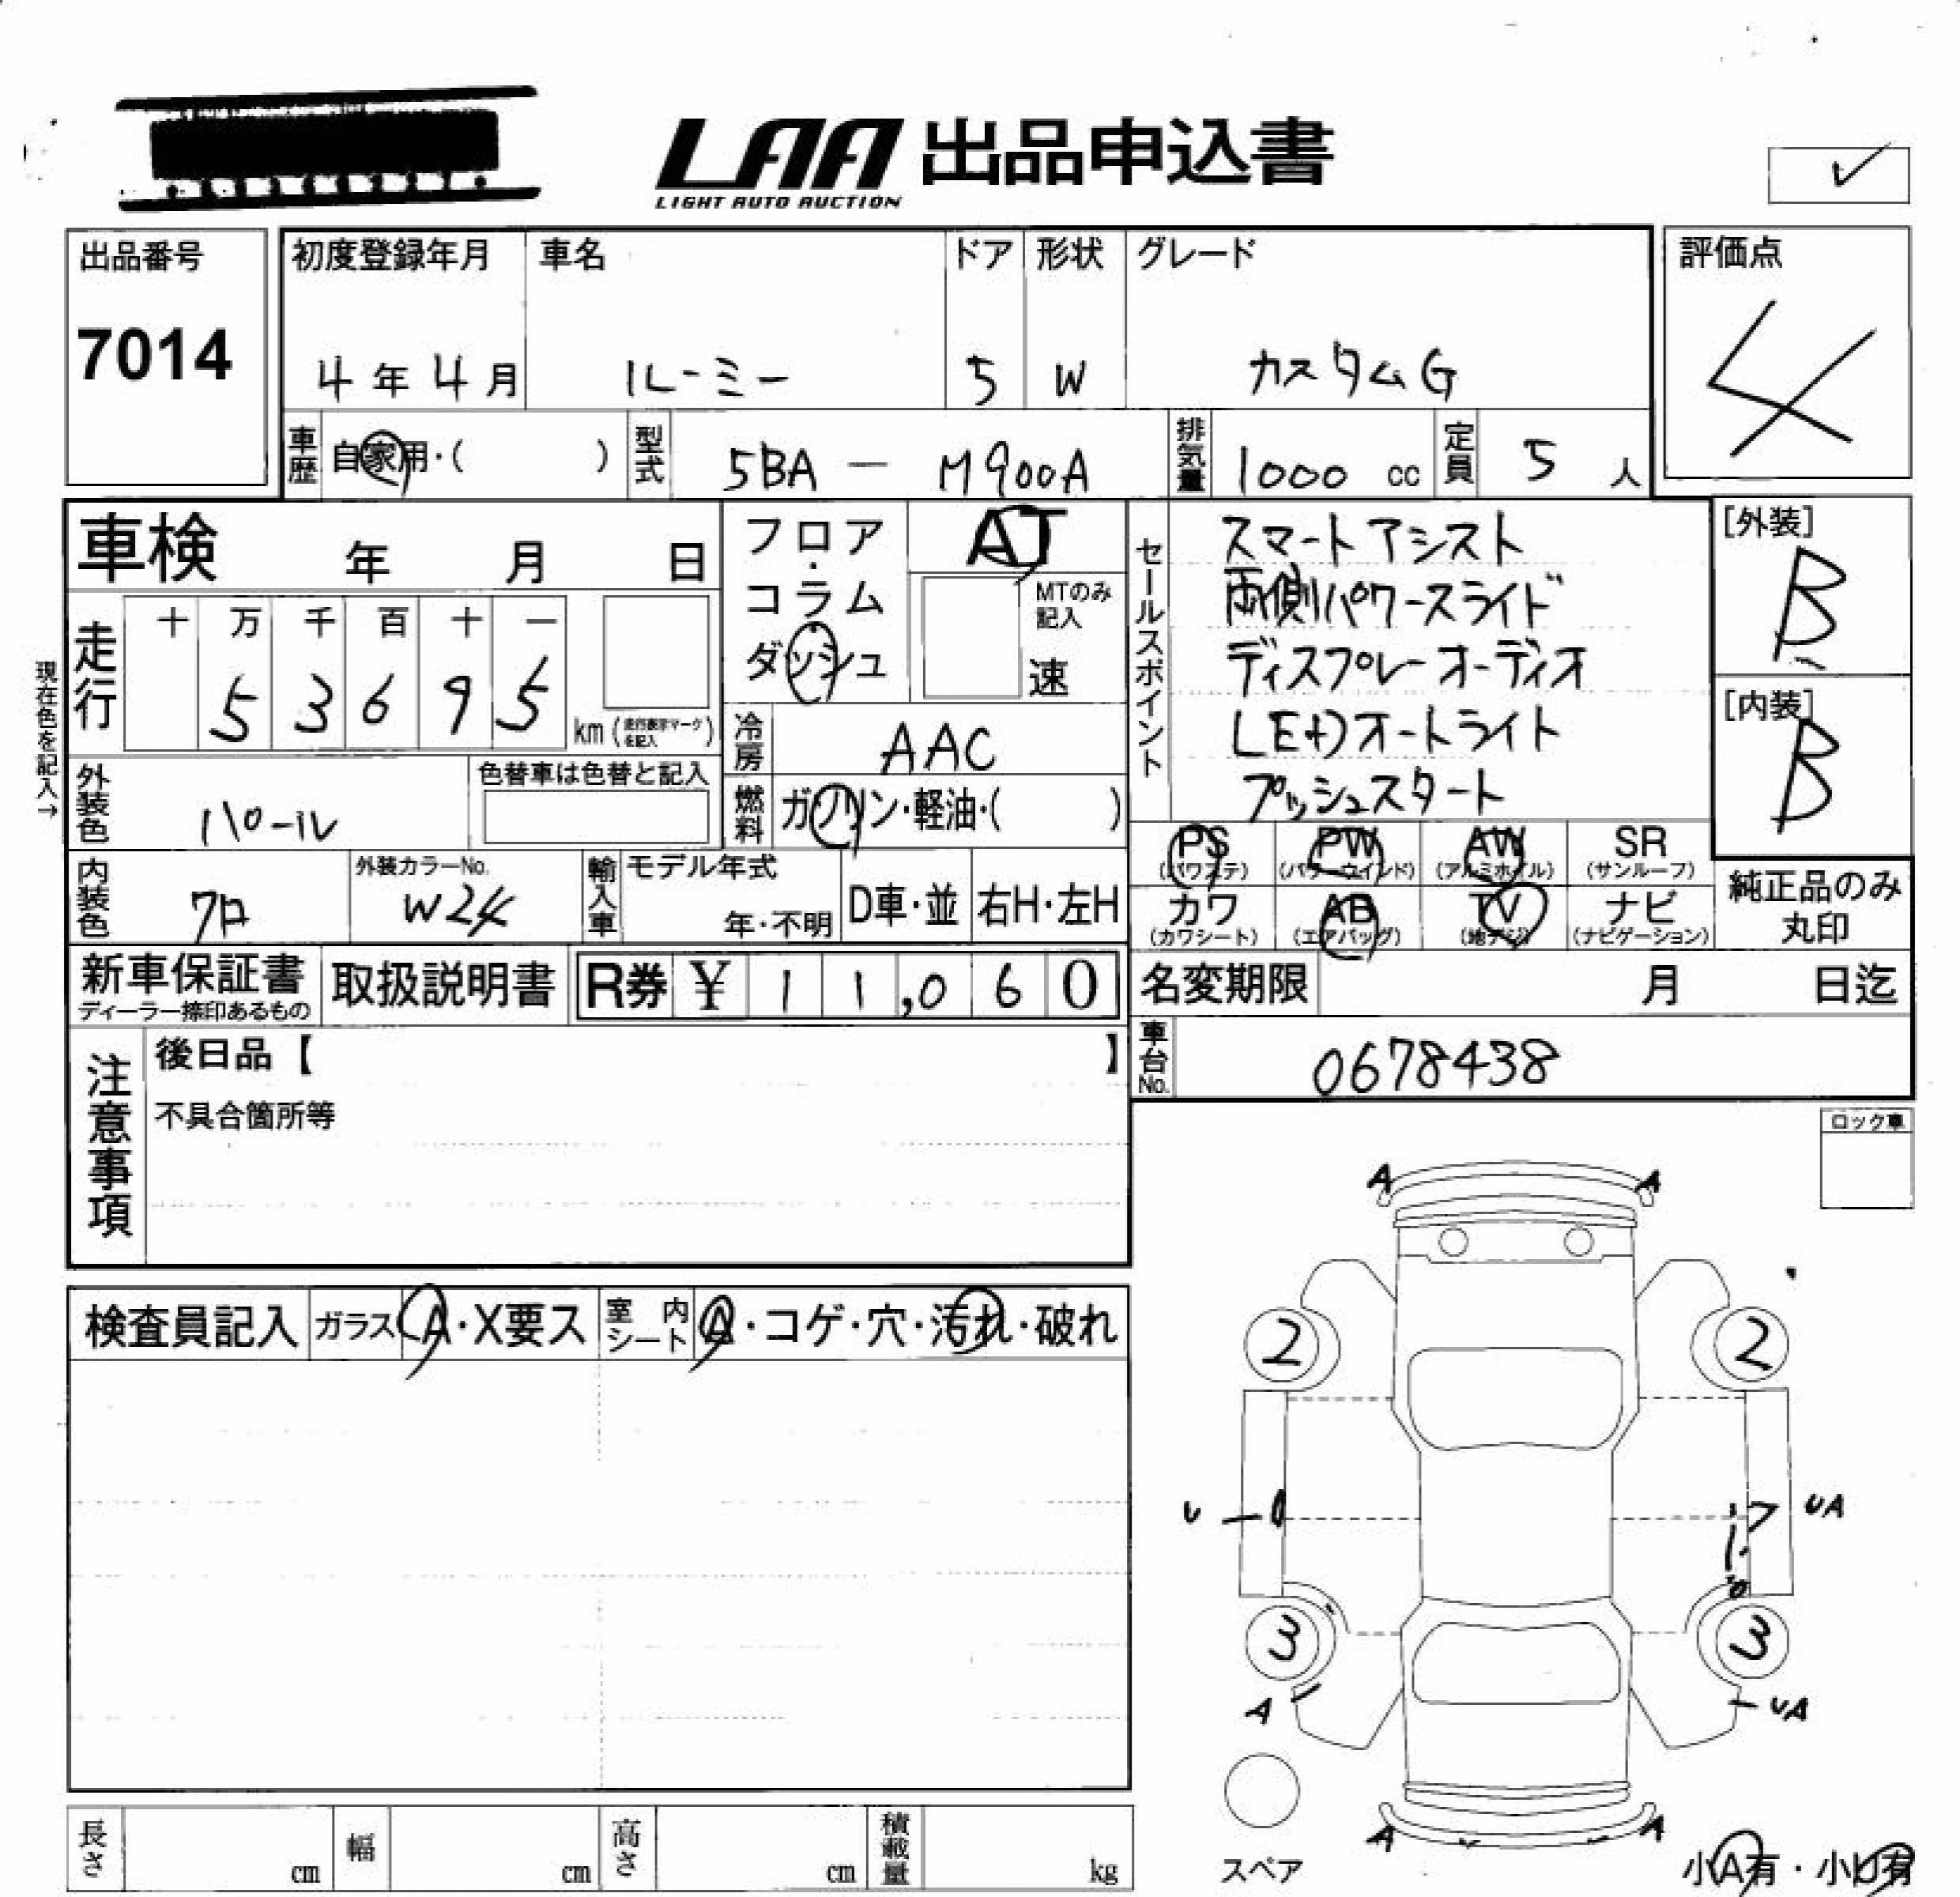 LAA 出品申込書
LIGHT AUTO AUCTION
✓
出品番号
7014
初度登録年月
4年4月
車名
ルーミー
ドア
5
形状
W
グレード
カスタムG
評価点
4
車歴
自家用・( )
型式
5BA — M900A
排気量
1000 cc
定員
5 人
車検 年 月 日
フロア・コラム
ダッシュ
AT
MTのみ記入
速
セールスポイント
スマートアシスト
両側パワースライド
ディスプレーオーディオ
LEDオートライト
プッシュスタート
[外装]
B
[内装]
B
現在色を記入→
走行
十 万 千 百 十 一
5 3 6 9 5
km (走行表示マークを記入)
冷房
AAC
外装色
パール
色替車は色替と記入
燃料
ガソリン・軽油・( )
内装色
クロ
外装カラーNo.
W24
輸入車
モデル年式
年・不明
D車・並
右H・左H
PS (パワステ)
PW (パワーウインド)
AW (アルミホイル)
SR (サンルーフ)
カワ (カワシート)
AB (エアバッグ)
TV (地デジ)
ナビ (ナビゲーション)
純正品のみ丸印
新車保証書
ディーラー捺印あるもの
取扱説明書
R券 ¥ 11,060
名変期限 月 日迄
車台No.
0678438
注意事項
後日品【 】
不具合箇所等
ロック車
検査員記入
ガラス A・X要ス
室内シート A・コゲ・穴・汚れ・破れ
A A
2 2
U UA
3 3
A UA
A A
スペア
小A有・小U有
長さ cm
幅 cm
高さ cm
積載量 kg